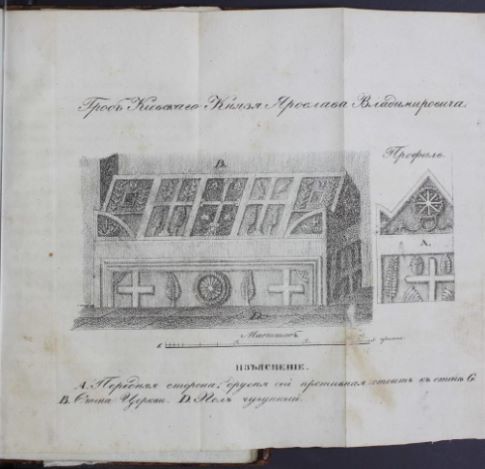 Гробъ Кіевскаго Князя Ярослава Владимировича.
Профиль.
B.
A.
D.
Масштабъ
ИЗЪЯСНЕНІЕ.
A. Передняя сторона; другая ей противная стоитъ къ стѣнѣ
B. Стѣна Церкви. D. Полъ чугунный.